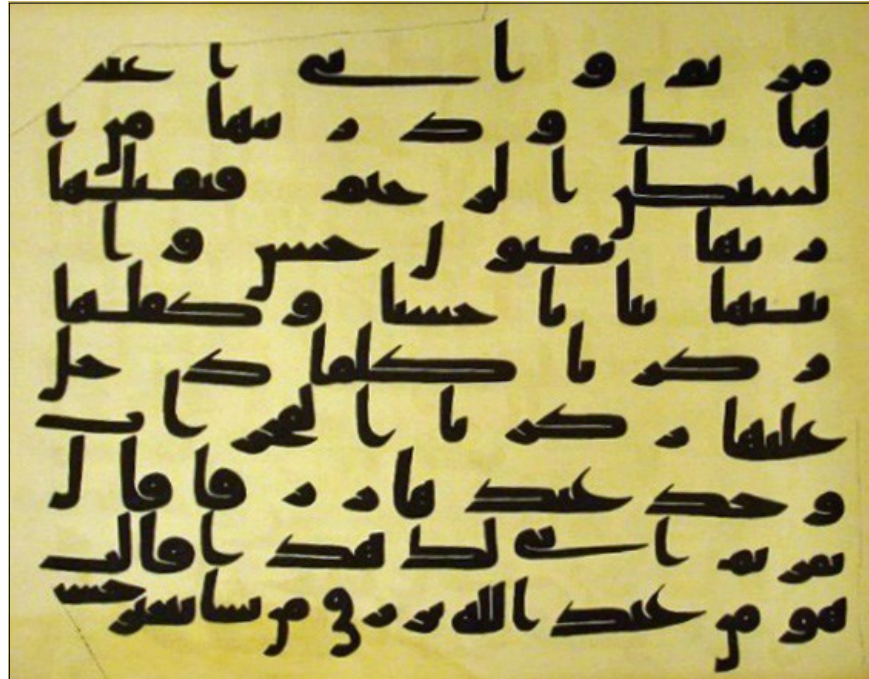 مريم واني اعيذ
ها بك وذريتها من ا
لشيطن الرجيم فتقبلها
ربها بقبول حسن وا
نبتها نباتا حسنا وكفلها
زكريا كلما دخل
عليها زكريا المحراب
وجد عندها رزقا قال
يمريم انى لك هذا قالت
هو من عند الله يرزق من يشا بغير حسا